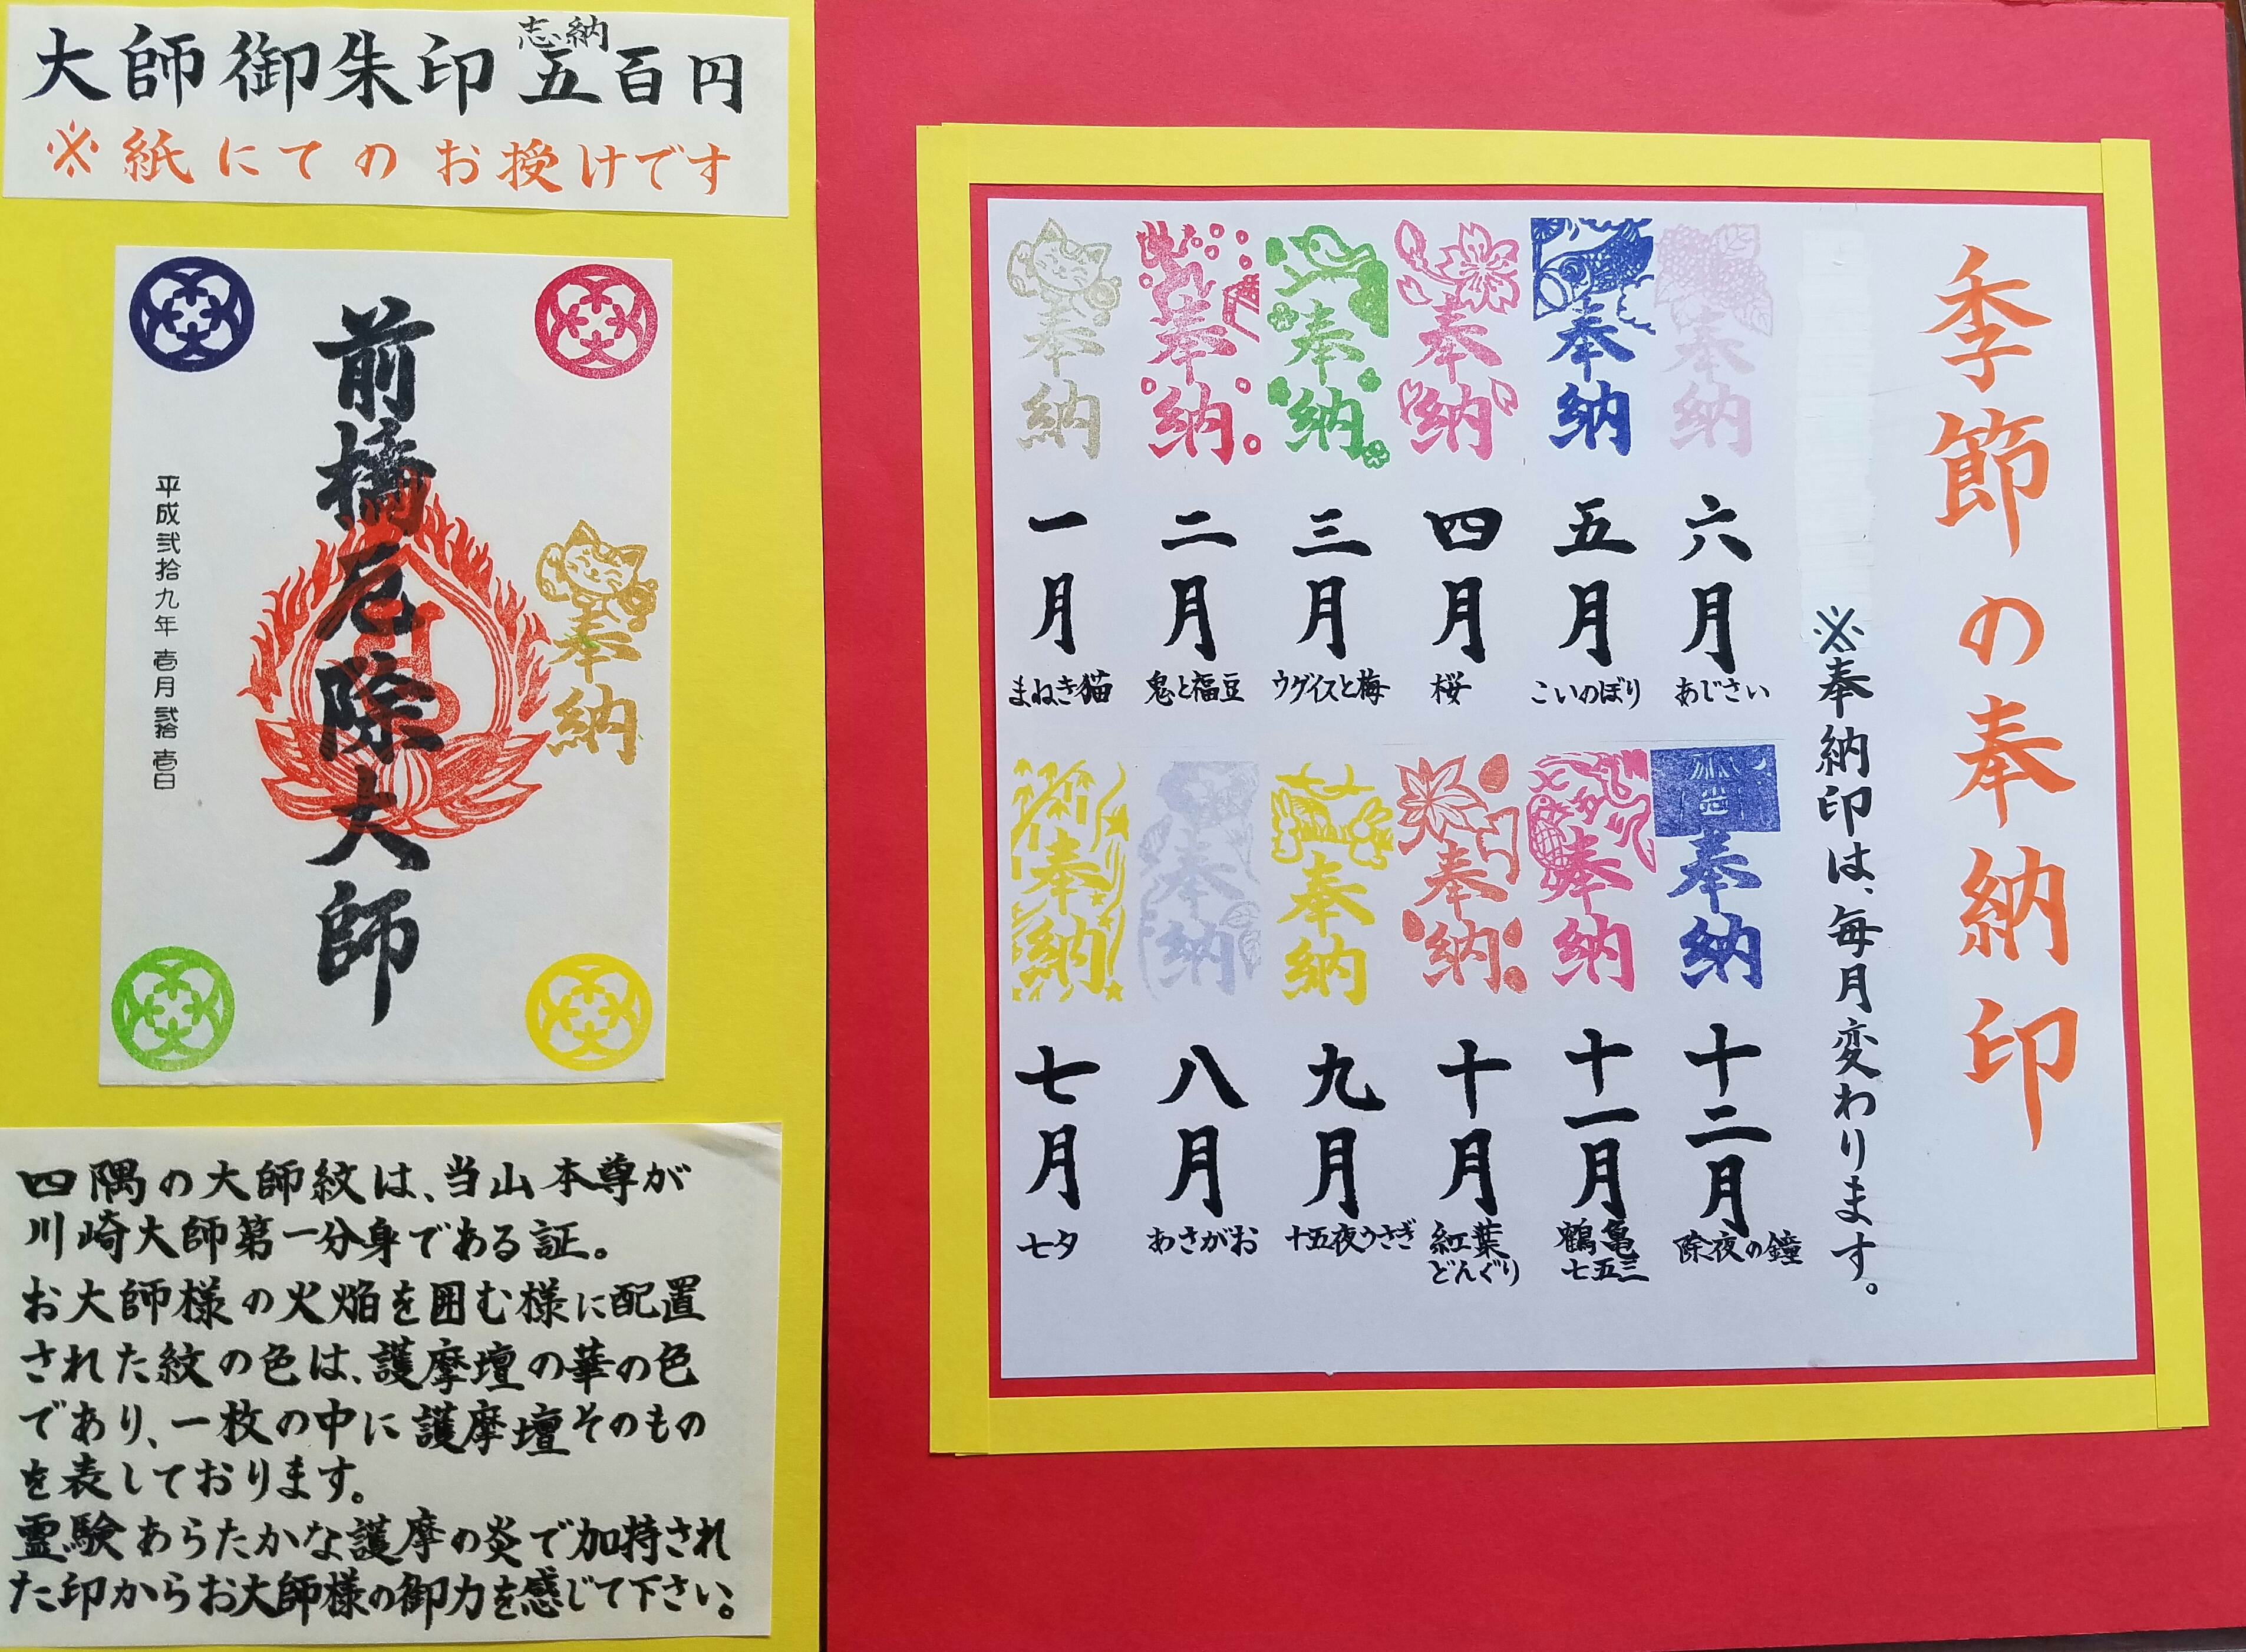 大師御朱印 志納 五百円
※紙にてのお授けです
前橋厄除大師
奉納
平成弐拾九年 壱月 弐拾壱日
四隅の大師紋は、当山本尊が
川崎大師第一分身である証。
お大師様の火焔を囲む様に配置
された紋の色は、護摩壇の華の色
であり、一枚の中に護摩壇そのもの
を表しております。
霊験あらたかな護摩の炎で加持され
た印からお大師様の御力を感じて下さい。
季節の奉納印
※奉納印は、毎月変わります。
奉納
一月
まねき猫
奉納
二月
鬼と福豆
奉納
三月
ウグイスと梅
奉納
四月
桜
奉納
五月
こいのぼり
奉納
六月
あじさい
奉納
七月
七夕
奉納
八月
あさがお
奉納
九月
十五夜うさぎ
奉納
十月
紅葉
どんぐり
奉納
十一月
鶴亀
七五三
奉納
十二月
除夜の鐘